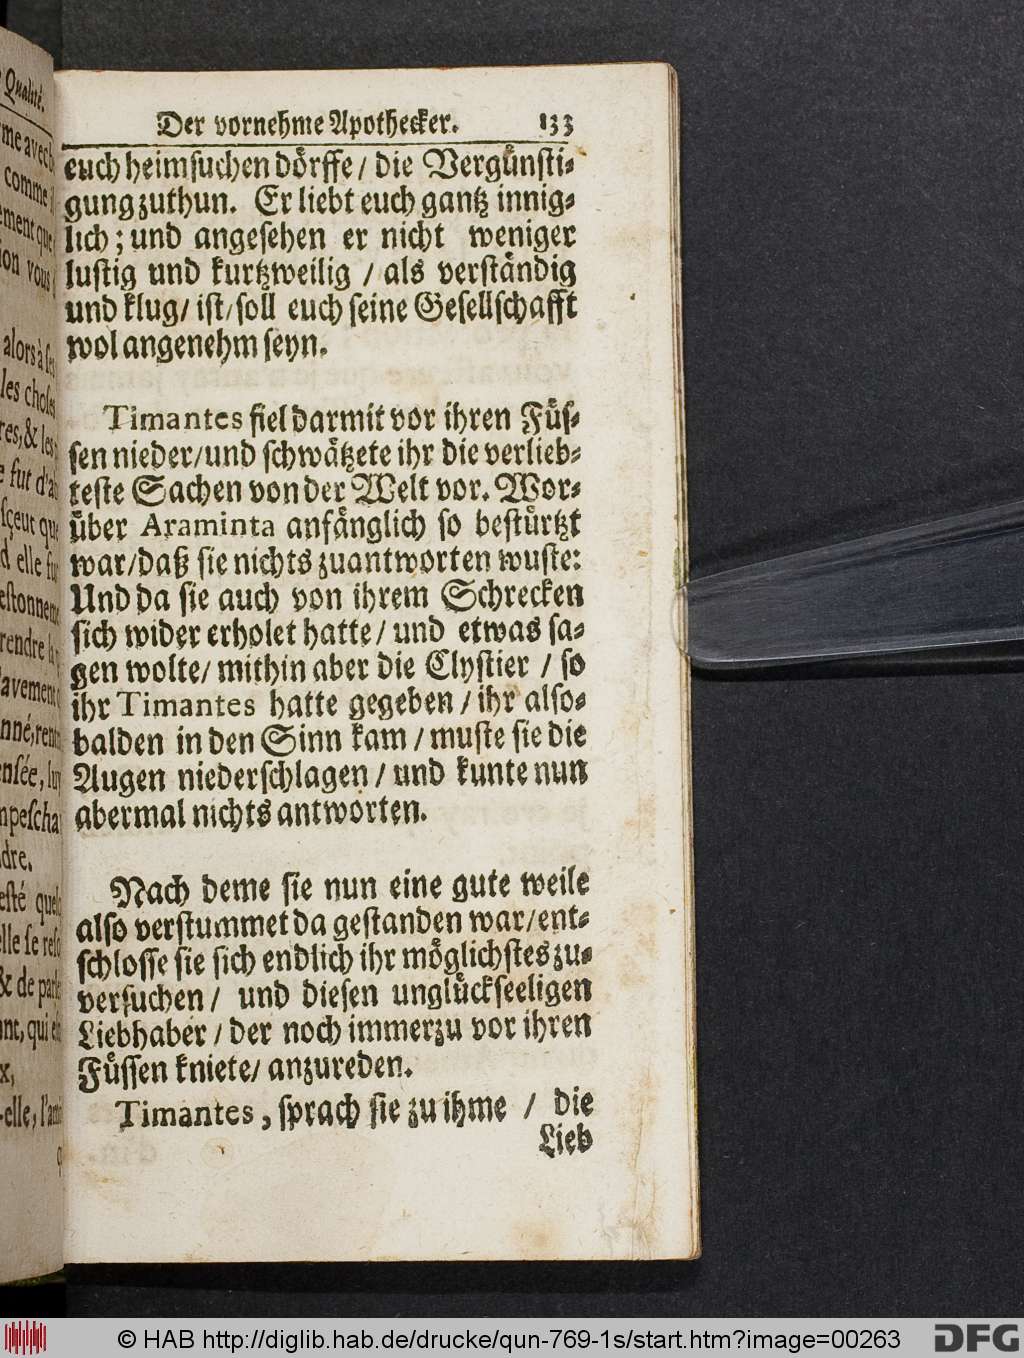 Der vornehme Apothecker. 133
euch heimsuchen dörffe / die Vergünsti-
gung zuthun. Er liebt euch gantz innig-
lich ; und angesehen er nicht weniger
lustig und kurtzweilig / als verständig
und klug / ist / soll euch seine Gesellschafft
wol angenehm seyn.
Timantes fiel darmit vor ihren Füs-
sen nieder / und schwätzete ihr die verlieb-
teste Sachen von der Welt vor. Wor-
über Araminta anfänglich so bestürtzt
war / daß sie nichts zuantworten wuste:
Und da sie auch von ihrem Schrecken
sich wider erholet hatte / und etwas sa-
gen wolte / mithin aber die Clystier / so
ihr Timantes hatte gegeben / ihr also-
balden in den Sinn kam / muste sie die
Augen niederschlagen / und kunte nun
abermal nichts antworten.
Nach deme sie nun eine gute weile
also verstummet da gestanden war / ent-
schlosse sie sich endlich ihr möglichstes zu-
versuchen / und diesen unglückseeligen
Liebhaber / der noch immerzu vor ihren
Füssen kniete / anzureden.
Timantes, sprach sie zu ihme / die
Lieb
© HAB http://diglib.hab.de/drucke/qun-769-1s/start.htm?image=00263
DFG